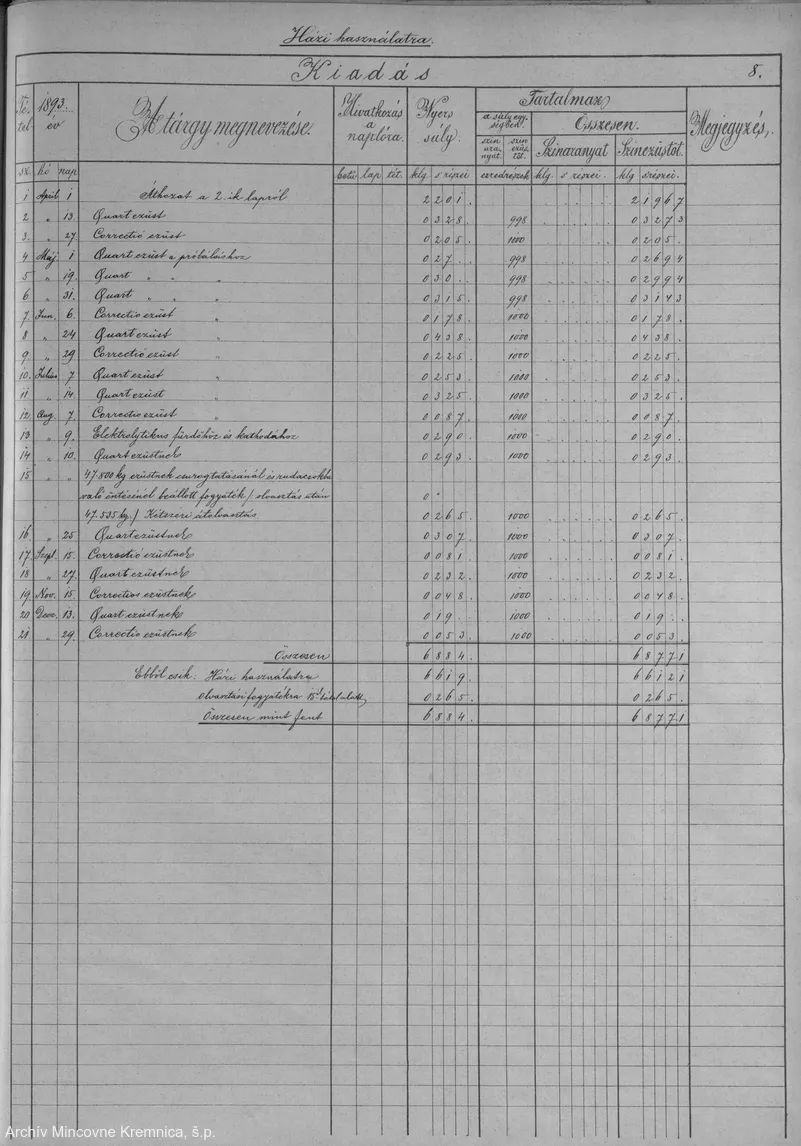 Házi használatra.
Kiadás 8.
Tétel 1893. év A tárgy megnevezése. Hivatkozás a naplóra. Nyers súly. Tartalmaz Megjegyzés.
a súly egységben. Összesen.
szinaranyat. szinezüstöt. Szinaranyat Szinezüstöt.
sz. hó nap betű lap tét. klg s részei ezredrészek klg. s részei. klg srészei.
1 April 1 Áthozat a 2.ik lapról 2 2 0 1. 2 1 9 6 7
2 „ 13 Quart ezüst 0 3 2 8. 998 0 3 2 7 3
3. „ 27. Correctió ezüst 0 2 0 5. 1000 0 2 0 5.
4 Máj 1 Quart ezüst a próbáláshoz 0 2 7. 998 0 2 6 9 4
5 „ 19. Quart „ „ „ 0 3 0. 998 0 2 9 9 4
6 „ 31. Quart „ „ „ 0 3 1 5. 998 0 3 1 4 3
7 Jun. 6. Correctio ezüst „ 0 1 7 8. 1000 0 1 7 8.
8 „ 24 Quart ezüst „ 0 4 3 8. 1000 0 4 3 8.
9 „ 29 Correctio ezüst „ 0 2 2 5. 1000 0 2 2 5.
10. Julius 7 Quart ezüst „ 0 2 5 3. 1000 0 2 5 3.
11 „ 14 Quart ezüst „ 0 3 2 5. 1000 0 3 2 5.
12 Aug. 7. Correctio ezüst „ 0 0 8 7. 1000 0 0 8 7.
13 „ 9. Elektrolytikus fürdőhöz és kathodához 0 2 9 0. 1000 0 2 9 0.
14 „ 10. Quart ezüstnek 0 2 9 3. 1000 0 2 9 3.
15 „ „ 47.800 kg ezüstnek csurogtatásánál és rudacsokba
való öntésénél beállott fogyaték / olvasztás után 0
47.535 kg. / Kétszeri átolvasztás 0 2 6 5. 1000 0 2 6 5.
16. „ 25 Quart ezüstnek 0 3 0 7. 1000 0 3 0 7.
17. Szept. 15. Correctió ezüstnek 0 0 8 1. 1000 0 0 8 1.
18 „ 27. Quart ezüstnek 0 2 3 2. 1000 0 2 3 2.
19. Nov. 15 Correctios ezüstnek 0 0 4 8. 1000 0 0 4 8.
20 Decz. 13. Quart ezüstnek 0 1 9. 1000 0 1 9.
21. „ 29. Correctio ezüstnek 0 0 5 3. 1000 0 0 5 3.
Összesen 6 8 8 4. 6 8 7 7 1
Ebből esik: Házi használatra 6 6 1 9. 6 6 1 2 1
olvasztási fogyatékra 15. tétel alatt 0 2 6 5. 0 2 6 5.
Összesen mint fent 6 8 8 4. 6 8 7 7 1
Archív Mincovne Kremnica, š.p.